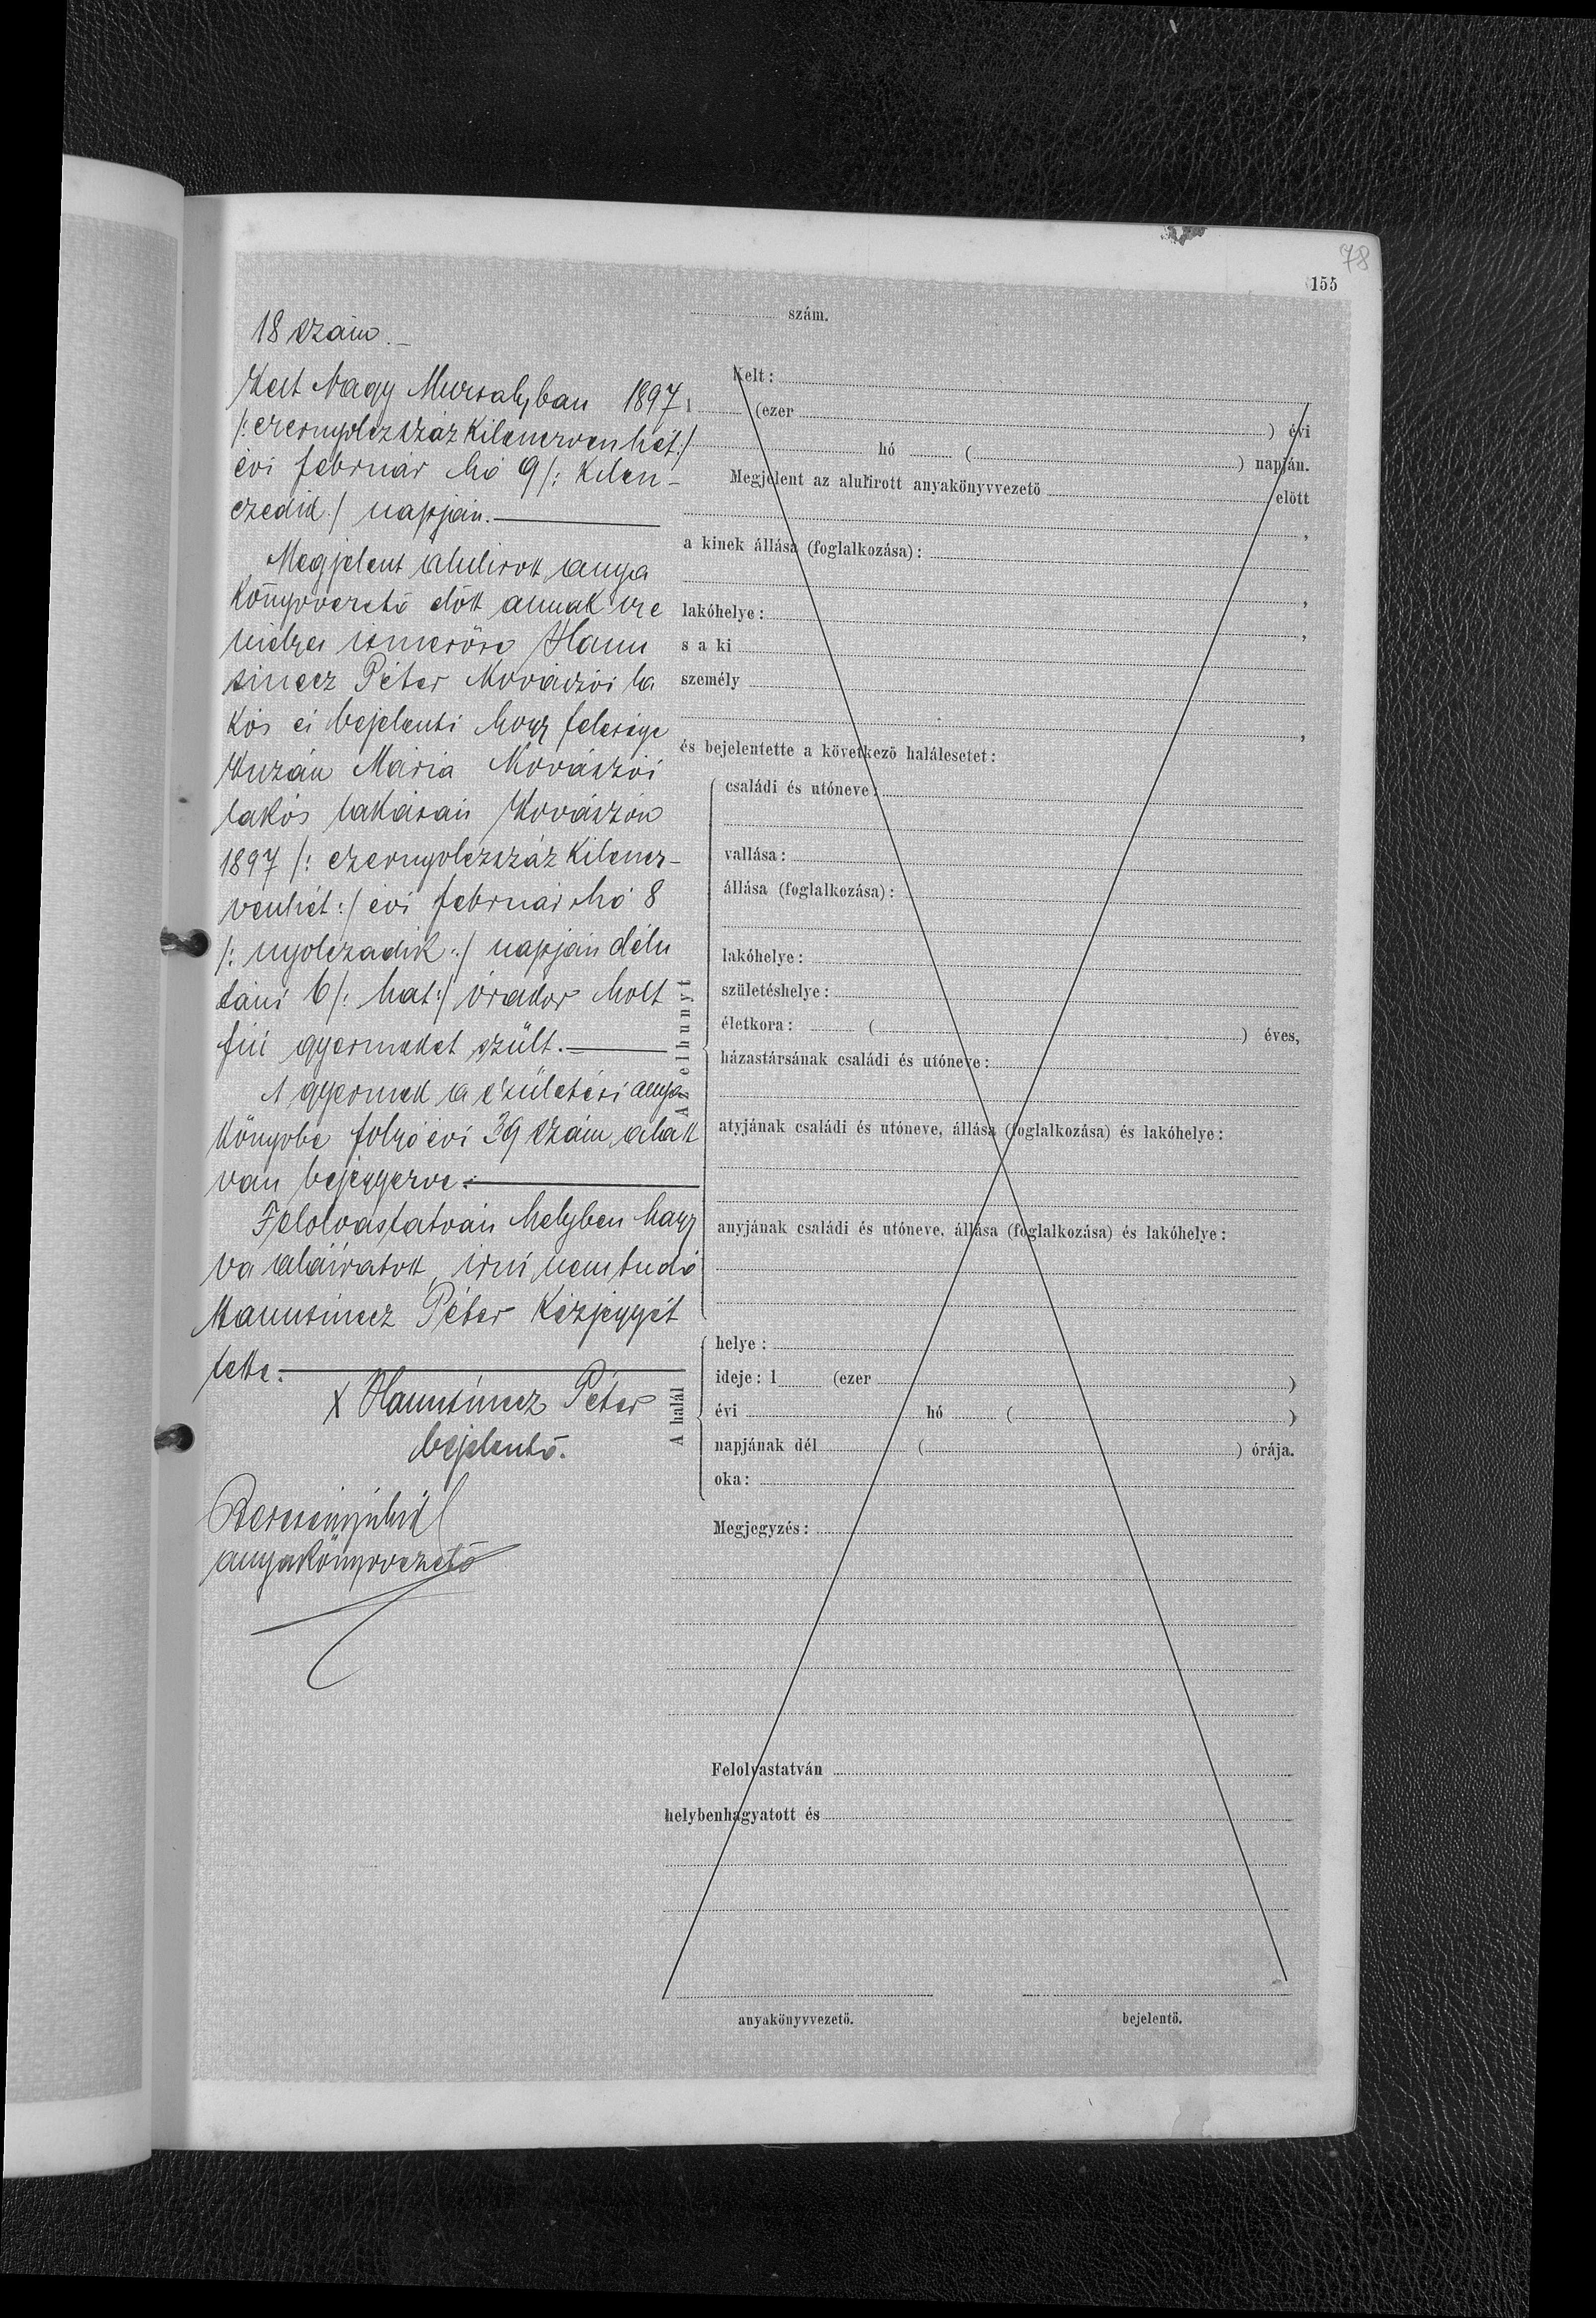 78
155
18 szám.
Kelt Nagy Muzsalyban 1897
/: ezernyolczszáz kilenczvenhét :/
évi február hó 9 /: kilen-
czedik :/ napján.
Megjelent alulirott anya
könyvvezető előtt annak sze
mélyes ismerőse
Péter Kovászói la
kós és bejelenti hogy felesége
Kuzán Mária Kovászói
lakós lakásán Kovászón
1897 /: ezernyolczszáz kilencz-
venhét :/ évi február hó 8
/: nyolczadik :/ napján délu
táni 6 /: hat :/ órakor holt
fiú gyermeket szült.
A gyermek a születési anya
könyvbe folyó évi 39 szám alatt
van bejegyezve.
Felolvastatván helyben hagy
va aláiratott, irni nem tudó
Péter kézjegyét
tette.
X Péter
bejelentő.
anyakönyvvezető
szám.
Kelt:
1 (ezer ) évi
hó ( ) napján.
Megjelent az alulirott anyakönyvvezető előtt
,
a kinek állása (foglalkozása):
,
lakóhelye: ,
s a ki
személy
,
és bejelentette a következő halálesetet:
Az elhunyt
családi és utóneve:
vallása:
állása (foglalkozása):
lakóhelye:
születéshelye:
életkora: ( ) éves,
házastársának családi és utóneve:
atyjának családi és utóneve, állása (foglalkozása) és lakóhelye:
anyjának családi és utóneve, állása (foglalkozása) és lakóhelye:
A halál
helye:
ideje: 1 (ezer )
évi hó ( )
napjának dél ( ) órája.
oka:
Megjegyzés:
Felolvastatván
helybenhagyatott és
anyakönyvvezető. bejelentő.